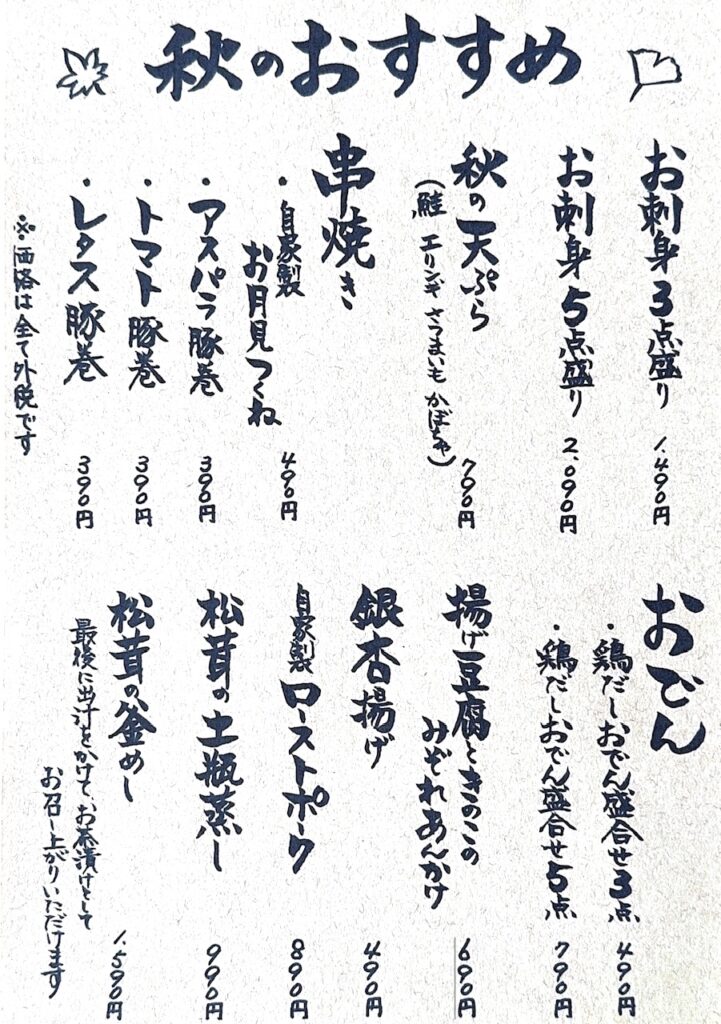 秋のおすすめ
お刺身3点盛り 1.490円
お刺身5点盛り 2.090円
秋の天ぷら 790円
(鮭 エリンギ さつまいも かぼちゃ)
串焼き
・自家製
お月見つくね 490円
・アスパラ豚巻 390円
・トマト豚巻 390円
・レタス豚巻 390円
※価格は全て外税です
おでん
・鶏だしおでん盛合せ3点 490円
・鶏だしおでん盛合せ5点 790円
揚げ豆腐ときのこの
みぞれあんかけ 690円
銀杏揚げ 490円
自家製ローストポーク 890円
松茸の土瓶蒸し 990円
松茸の釜めし 1.590円
最後に出汁をかけて、お茶漬けとして
お召し上がりいただけます